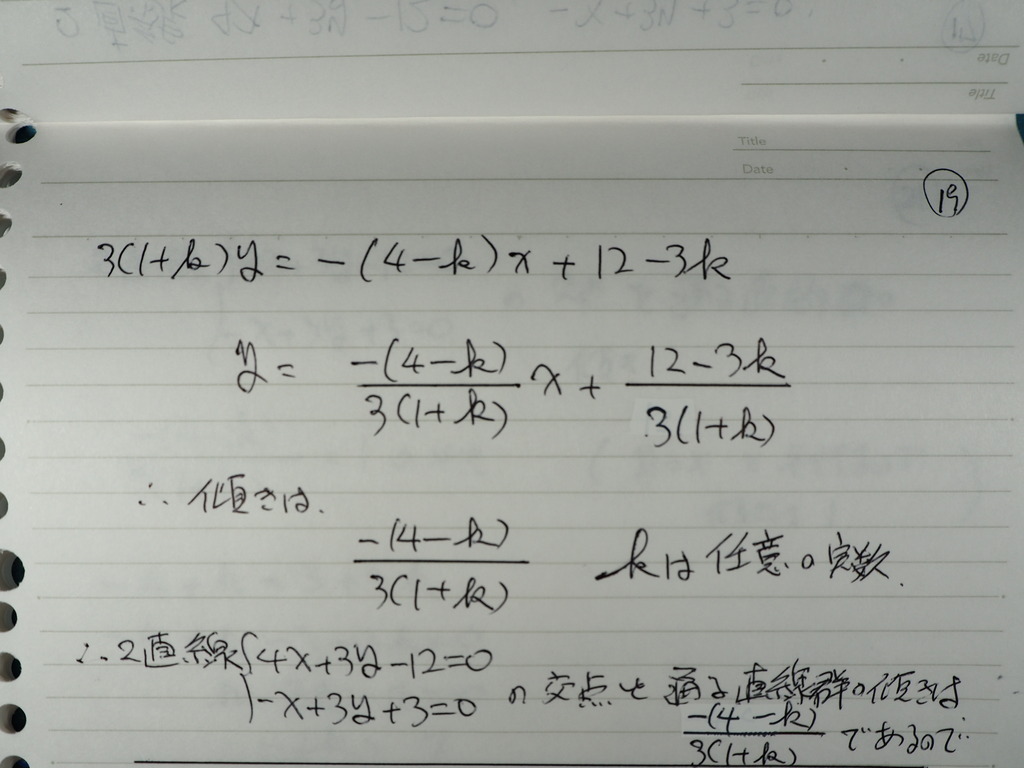 直線 4x+3y-12=0 -x+3y+3=0
Date
Title
Title
Date
19
3(1+k)y = -(4-k)x + 12-3k
y = -(4-k)/3(1+k) x + 12-3k/3(1+k)
∴ 傾きは.
-(4-k)/3(1+k) kは任意の実数.
∴ 2直線{4x+3y-12=0
-x+3y+3=0 の交点を通る直線群の傾きは
-(4-k)/3(1+k) であるので